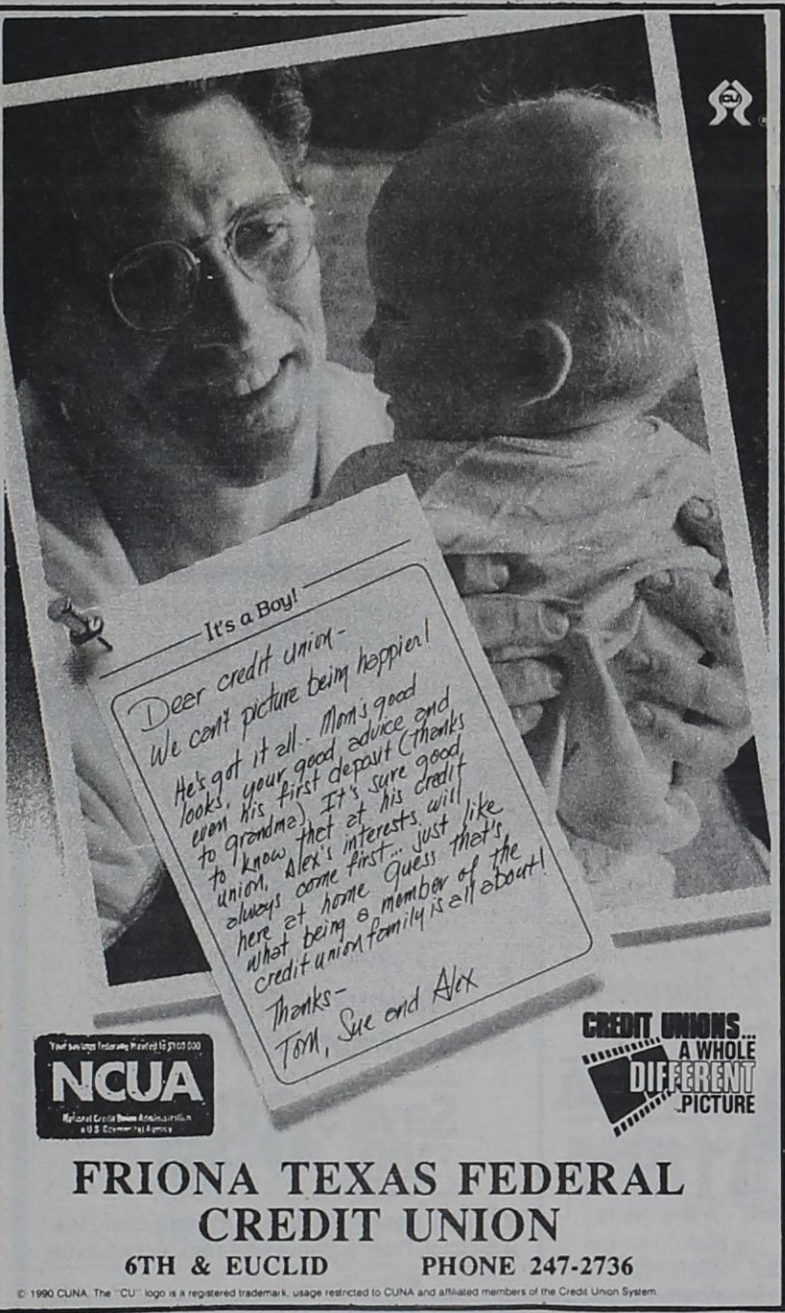 CU
®
It's a Boy!
Dear credit union-
We can't picture being happier!
He's got it all... Mom's good
looks, your good advice and
even his first deposit (thanks
to grandma). It's sure good
to know that at his credit
union, Alex's interests will
always come first... just like
here at home. Guess that's
what being a member of the
credit union family is all about!
Thanks-
Tom, Sue and Alex
Your savings federally insured to $100,000
NCUA
National Credit Union Administration
a U.S. Government Agency
CREDIT UNIONS...
A WHOLE
DIFFERENT
PICTURE
FRIONA TEXAS FEDERAL
CREDIT UNION
6TH & EUCLID PHONE 247-2736
© 1990 CUNA. The "CU" logo is a registered trademark, usage restricted to CUNA and affiliated members of the Credit Union System.